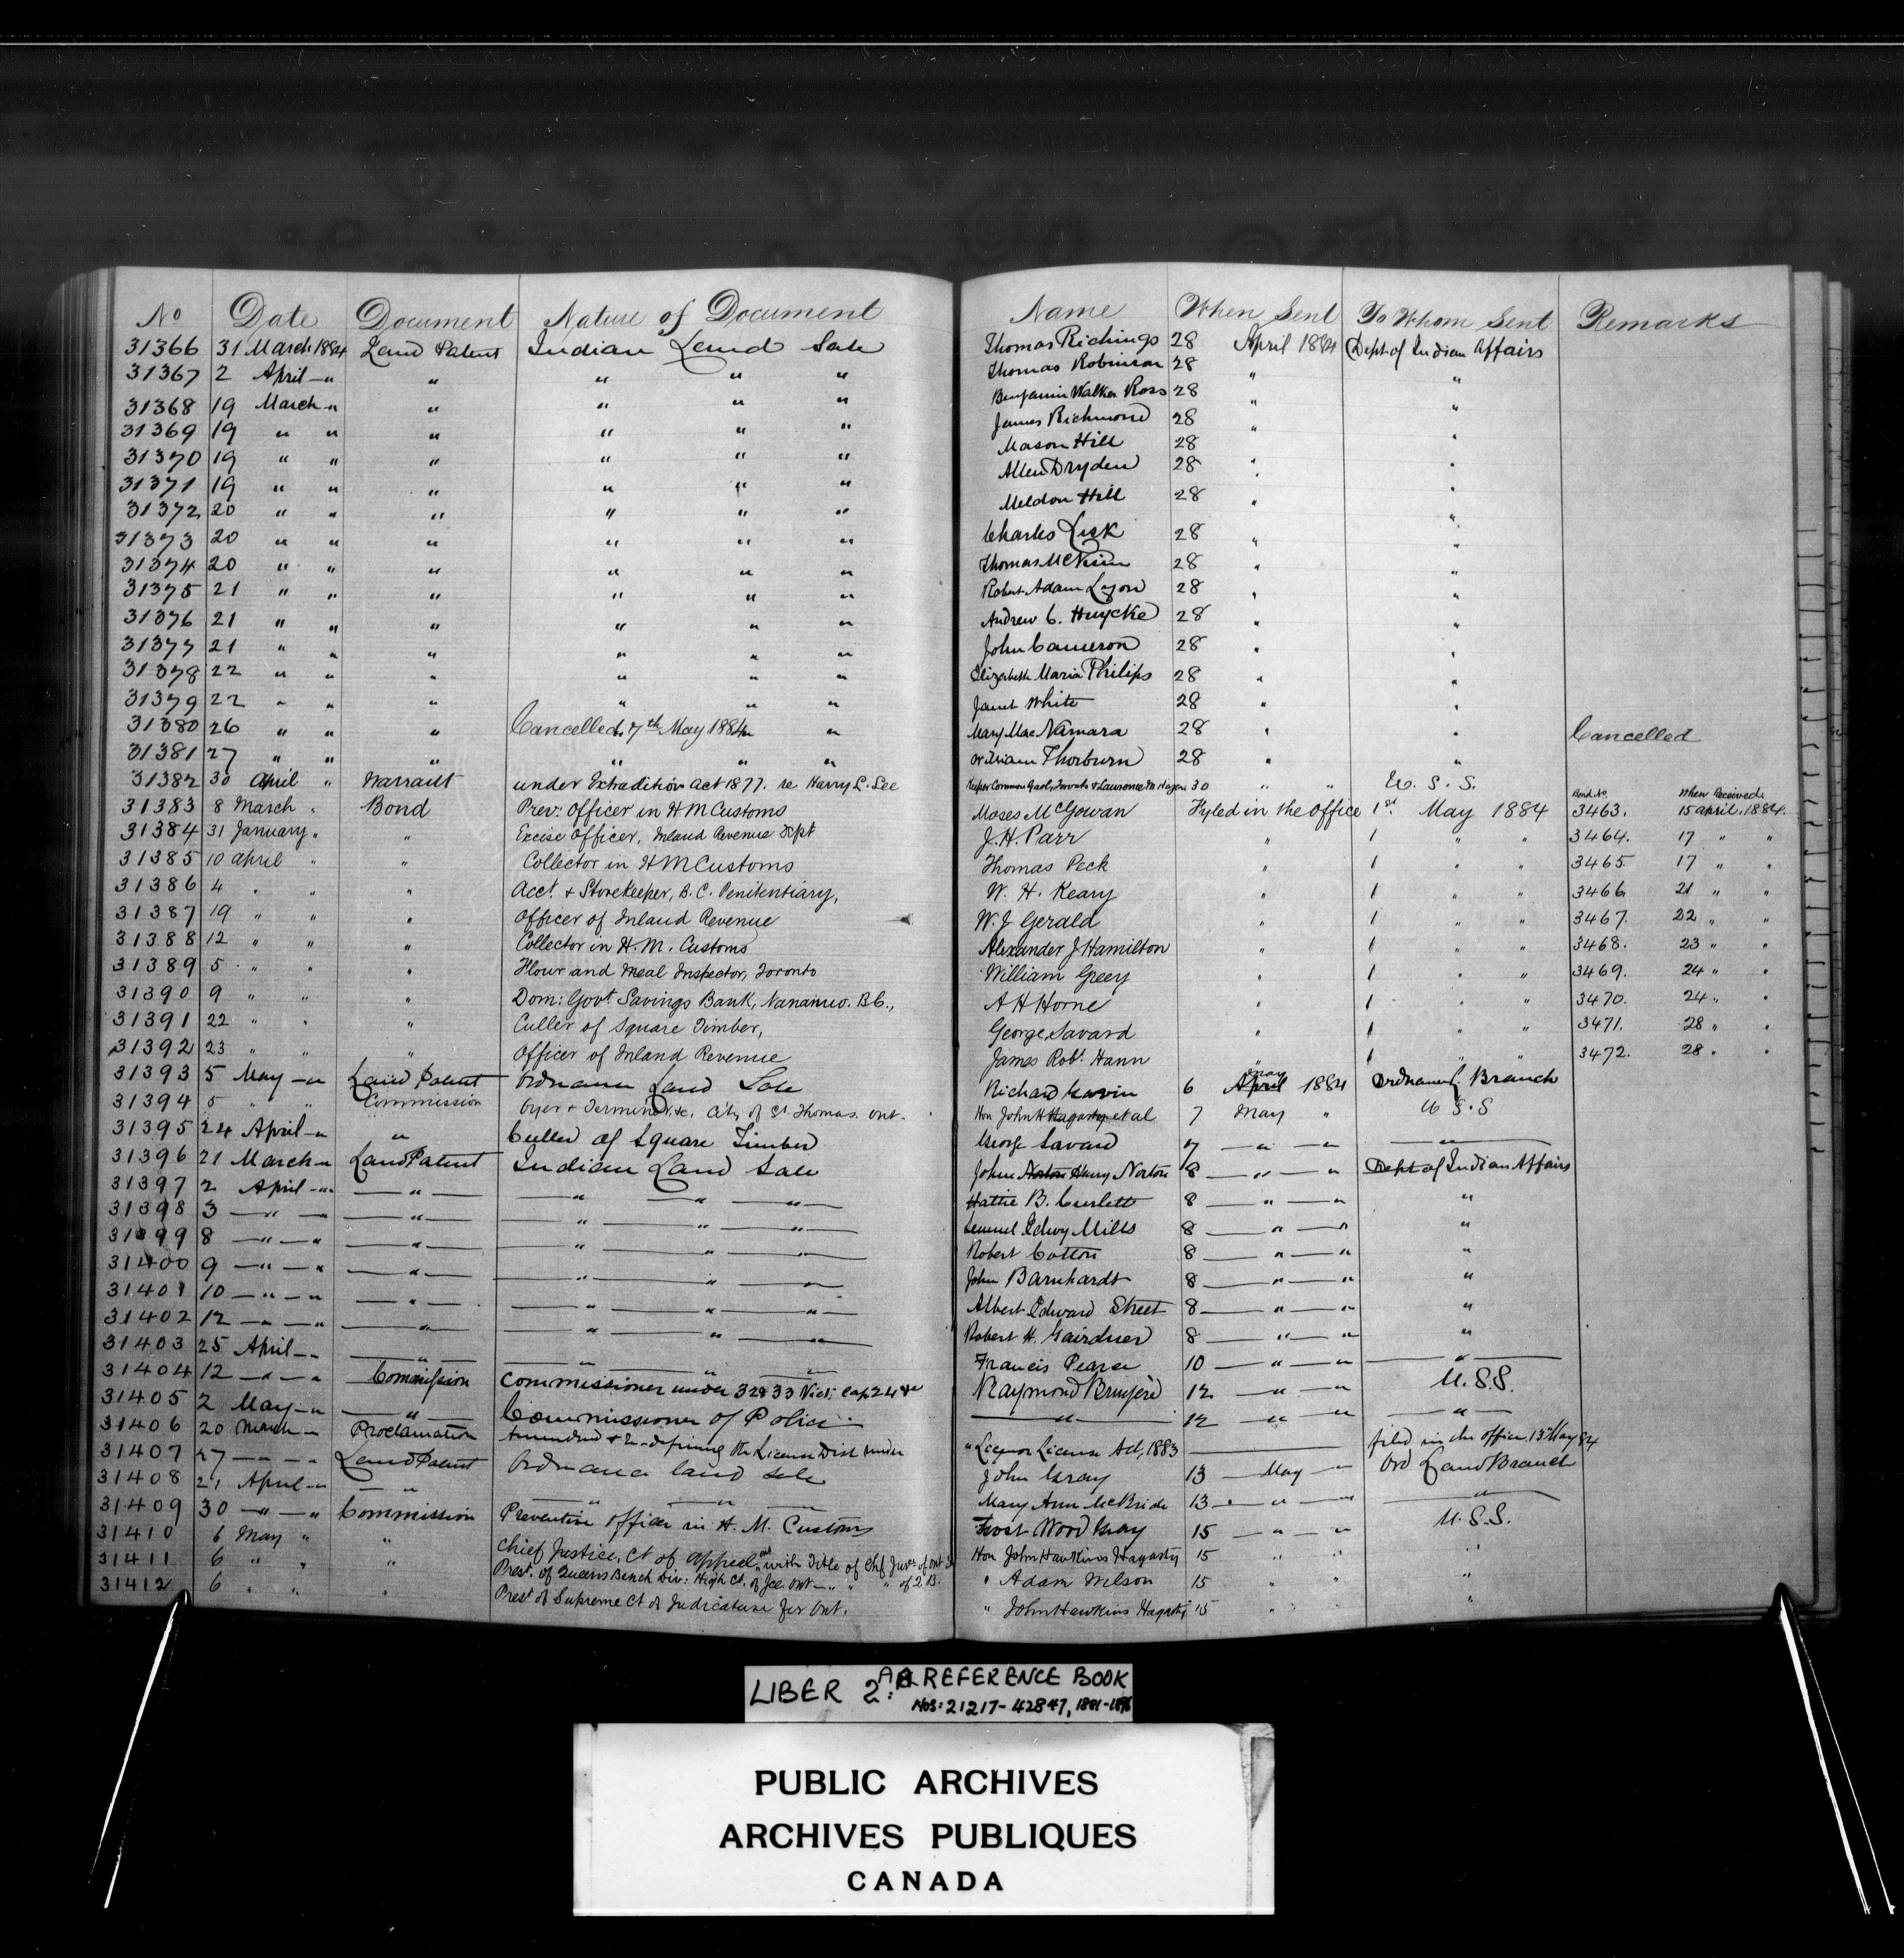 No Date Document Nature of Document Name When Sent To Whom Sent Remarks
31366 31 March 1884 Land Patent Indian Land Sale Thomas Richings 28 April 1884 Dept of Indian Affairs
31367 2 April — " " " " " Thomas Robinson 28 " "
31368 19 March " " " " " Benjamin Walker Ross 28 " "
31369 19 " " " " " " James Richmond 28 " "
31370 19 " " " " " " Mason Hill 28 " "
31371 19 " " " " " " Allen Dryden 28 " "
31372 20 " " " " " " Meldon Hill 28 " "
31373 20 " " " " " " Charles Lisk 28 " "
31374 20 " " " " " " Thomas 28 " "
31375 21 " " " " " " Robert Adam Lyon 28 " "
31376 21 " " " " " " Andrew C. Huycke 28 " "
31377 21 " " " " " " John Cameron 28 " "
31378 22 " " " " " " Elizabeth Maria Philips 28 " "
31379 22 " " " " " " Janet White 28 " "
31380 26 " " " Cancelled, 7th May 1884 " Mary MacNamara 28 " " Cancelled
31381 27 " " " " " " William Thorburn 28 " "
31382 30 April " Warrant under Extradition Act 1877. re Harry L. Lee Keeper Common Gaol, Toronto & Lawrence 30 " " U. S. S.
Bond No. When Received
31383 8 March " Bond Prev: Officer in H M Customs Moses McGowan Fyled in the Office 1st May 1884 3463. 15 april. 1884.
31384 31 January " " Excise Officer, Inland Revenue Dept J. H. Parr " 1 " " 3464. 17 " "
31385 10 april " " Collector in H M Customs Thomas Peck " 1 " " 3465 17 " "
31386 4 " " " Acct. & Storekeeper, B. C. Penitentiary, W. H. Keary " 1 " " 3466 21 " "
31387 19 " " " Officer of Inland Revenue W. J Gerald " 1 " " 3467. 22 " "
31388 12 " " " Collector in H. M. Customs Alexander J Hamilton " 1 " " 3468. 23 " "
31389 5 " " " Flour and Meal Inspector, Toronto William Greey " 1 " " 3469. 24 " "
31390 9 " " " Dom: Govt Savings Bank, Nanaimo. B.C., A H Horne " 1 " " 3470. 24 " "
31391 22 " " " Culler of Square Timber, George Savard " 1 " " 3471. 28 " "
31392 23 " " " Officer of Inland Revenue James Robt. Hann " 1 " " 3472. 28 " "
31393 5 May — " Land Patent Ordnance Land Sale Richard 6 April May 1884 Ordnance L. Branch
31394 5 " " Commission Oyer & Terminer &c. City of St. Thomas. Ont. Hon John H Hagarty et al 7 May " U S. S
31395 24 April — " " Culler of Square Timber George Savard 7 — " — " — " —
31396 21 March — " Land Patent Indian Land Sale John Norton Harry Norton 8 — " — " Dept of Indian Affairs
31397 2 April — " — " — — " — " — " — Hattie B. Curlett 8 — " — " "
31398 3 — " — " — " — — " — " — " — Lemuel Edwy Mills 8 — " — " "
31399 8 — " — " — " — — " — " — " — Robert Cotton 8 — " — " "
31400 9 — " — " — " — — " — " — " — John Barnhardt 8 — " — " "
31401 10 — " — " — " — — " — " — " — Albert Edward Street 8 — " — " "
31402 12 — " — " — " — — " — " — " — Robert H. Gairdner 8 — " — " "
31403 25 April — " — " — — " — " — " — Francis Pearce 10 — " — " — " —
31404 12 — " — " Commission Commissioner under 32 & 33 Vict: Cap 24 &c Raymond Bruyère 12 — " — " U. S. S.
31405 2 May — " — " — Commissioner of Police — " — 12 — " — " — " —
31406 20 March — " Proclamation Amended & Re-defining the License Dist under "Liquor License Act, 1883 — filed in the office, 13th May 84
31407 27 — " — " Land Patent Ordnance land sale John Gray 13 — May — " Ord Land Branch
31408 21 April — " — " — " — " — " — Mary Ann McBride 13 — " — " — " —
31409 30 — " — " Commission Preventive Officer in H. M. Customs Frost Wood Gray 15 — " — " U. S. S.
31410 6 May " " Chief Justice, Ct of Appeal, Ont with Title of Chf Just: of Ont Hon John Hawkins Hagarty 15 " " "
31411 6 " " " Prest. of Queens Bench Div: High Ct. of Jce. Ont — " " " of Q. B. " Adam Wilson 15 " " "
31412 6 " " " Prest of Supreme Ct of Judicature for Ont. " John Hawkins Hagarty 15 " " "
LIBER 2: REFERENCE BOOK
Nos: 21217-42847,
PUBLIC ARCHIVES
ARCHIVES PUBLIQUES
CANADA